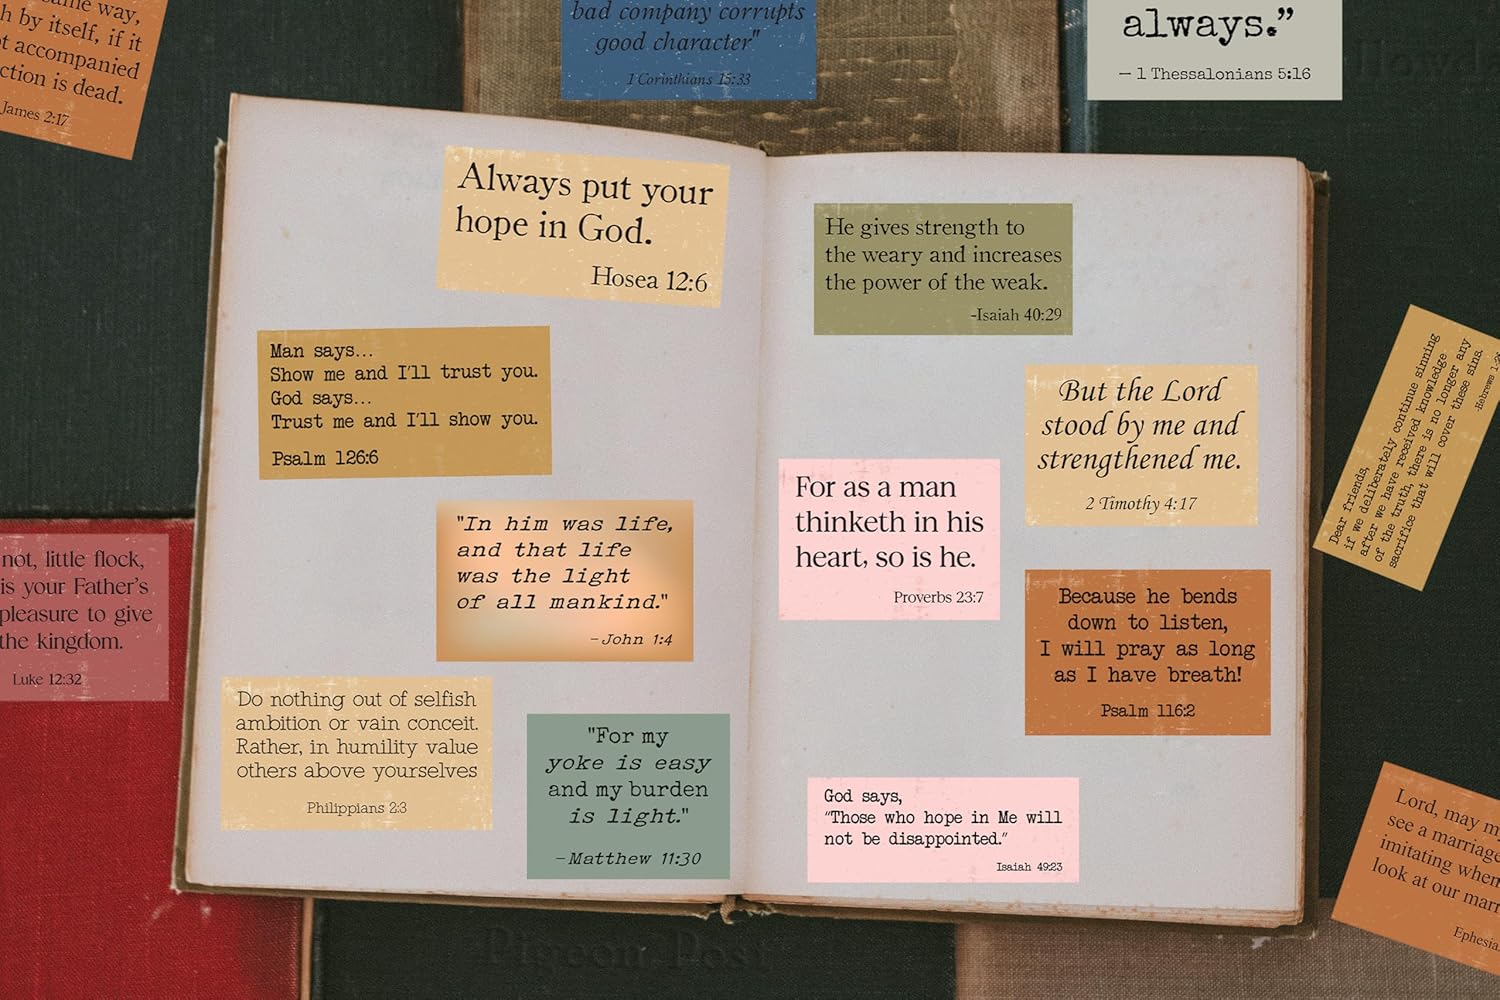 ame way,
h by itself, if it
t accompanied
ction is dead.
James 2:17
bad company corrupts
good character"
1 Corinthians 15:33
always.”
– 1 Thessalonians 5:16
Always put your
hope in God.
Hosea 12:6
Man says...
Show me and I'll trust you.
God says...
Trust me and I'll show you.
Psalm 126:6
"In him was life,
and that life
was the light
of all mankind."
–John 1:4
Do nothing out of selfish
ambition or vain conceit.
Rather, in humility value
others above yourselves
Philippians 2:3
"For my
yoke is easy
and my burden
is light."
–Matthew 11:30
He gives strength to
the weary and increases
the power of the weak.
-Isaiah 40:29
But the Lord
stood by me and
strengthened me.
2 Timothy 4:17
For as a man
thinketh in his
heart, so is he.
Proverbs 23:7
Because he bends
down to listen,
I will pray as long
as I have breath!
Psalm 116:2
God says,
"Those who hope in Me will
not be disappointed."
Isaiah 49:23
not, little flock,
is your Father's
pleasure to give
the kingdom.
Luke 12:32
Dear friends,
if we deliberately continue sinning
after we have received knowledge
of the truth, there is no longer any
sacrifice that will cover these sins.
-Hebrews
Lord, may m
see a marriage
imitating when
look at our marr
Ephesia
Pigeon Post